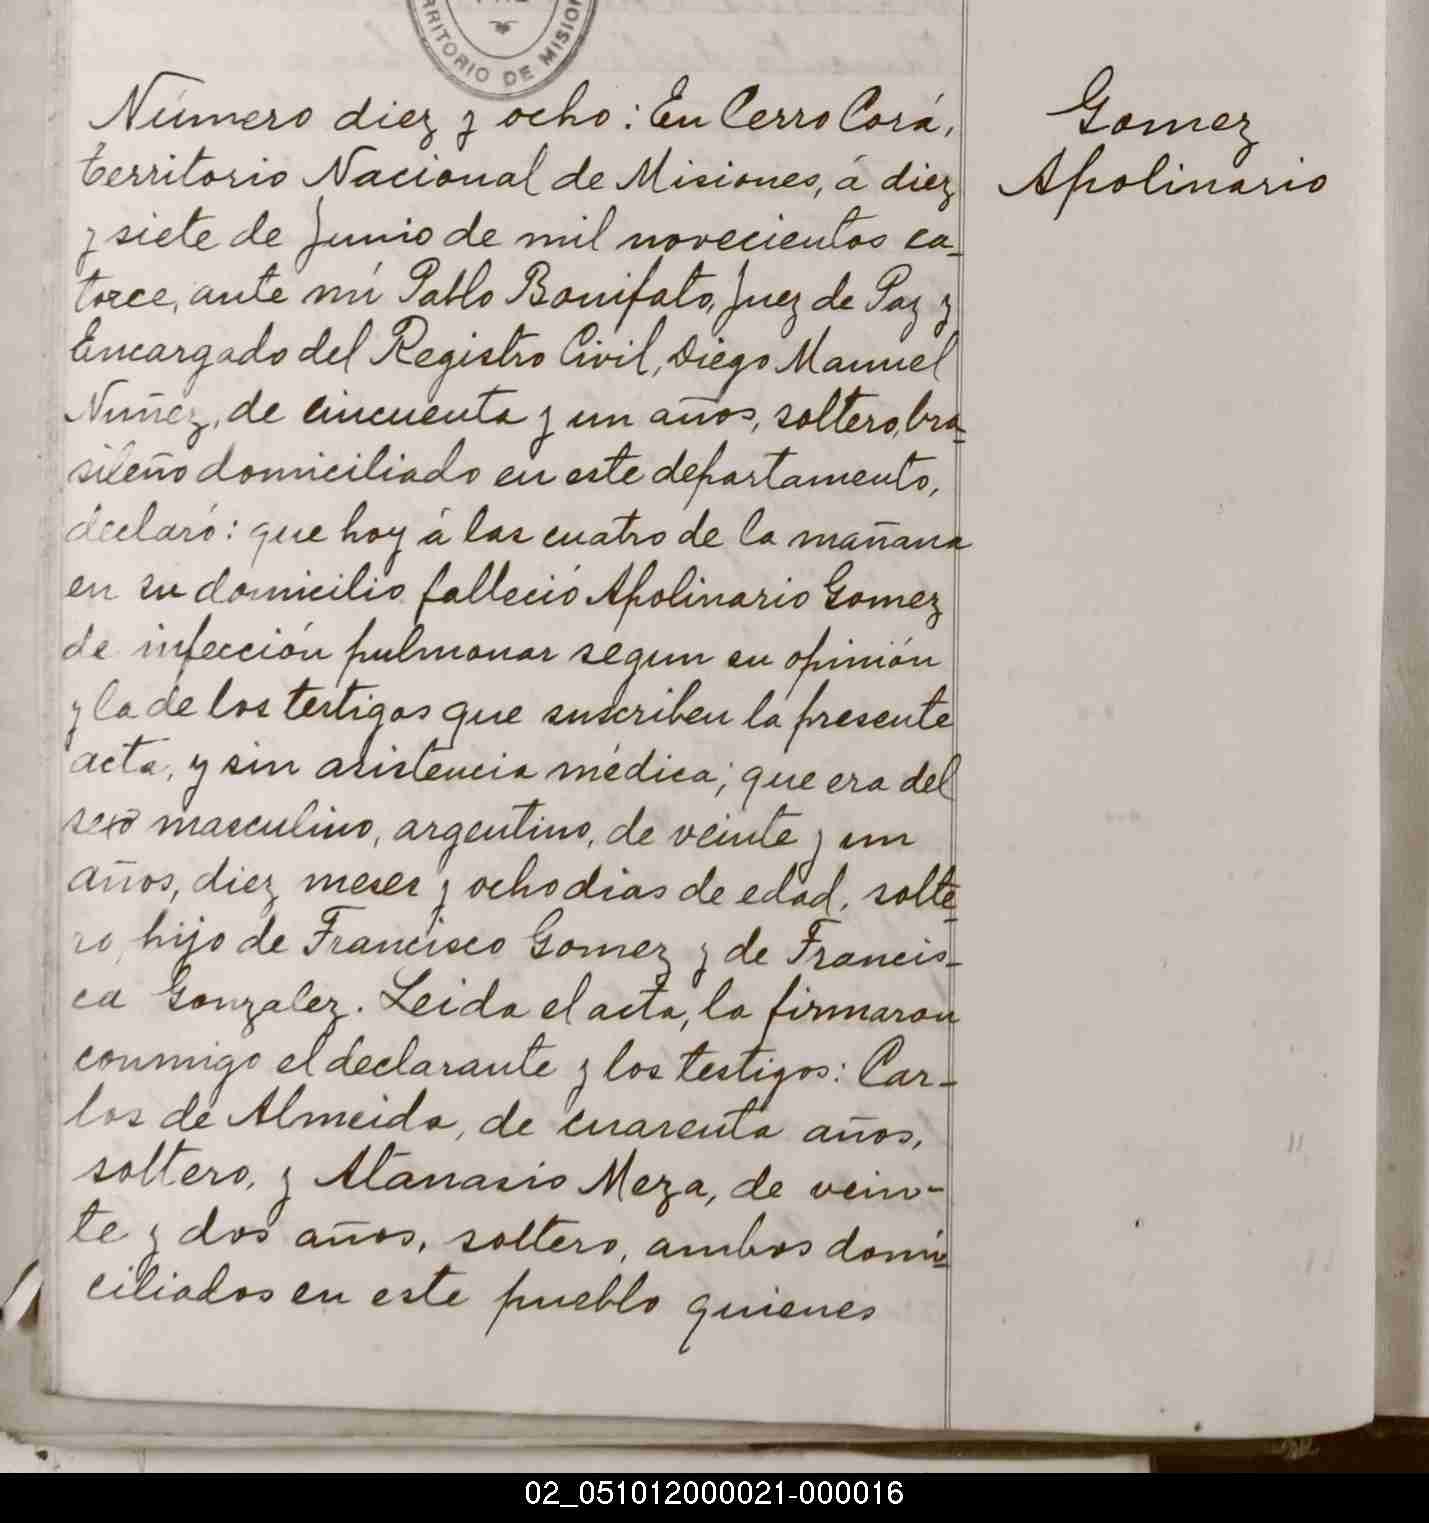 RRITORIO DE MISION
Número diez y ocho: En Cerro Corá,
territorio Nacional de Misiones, á diez
y siete de Junio de mil novecientos ca-
torce, ante mí Pablo Bonifato, Juez de Paz y
Encargado del Registro Civil, Diego Manuel
Nuñez, de cincuenta y un años, soltero, bra-
sileño domiciliado en este departamento,
declaró: que hoy á las cuatro de la mañana
en su domicilio falleció Apolinario Gomez
de infección pulmonar segun su opinión
y la de los testigos que suscriben la presente
acta, y sin asistencia médica; que era del
sexo masculino, argentino, de veinte y un
años, diez meses y ocho dias de edad, solte-
ro, hijo de Francisco Gomez y de Francis-
ca Gonzalez. Leida el acta, la firmaron
conmigo el declarante y los testigos: Car-
los de Almeida, de cuarenta años,
soltero, y Atanasio Meza, de vein-
te y dos años, soltero, ambos domi-
ciliados en este pueblo quienes
Gomez
Apolinario
02_051012000021-000016